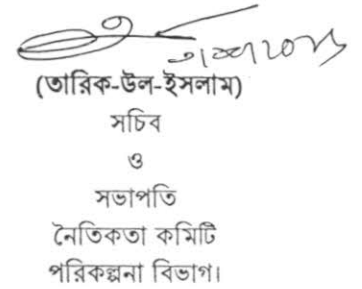 (তারিক-উল-ইসলাম)
সচিব
ও
সভাপতি
নৈতিকতা কমিটি
পরিকল্পনা বিভাগ।